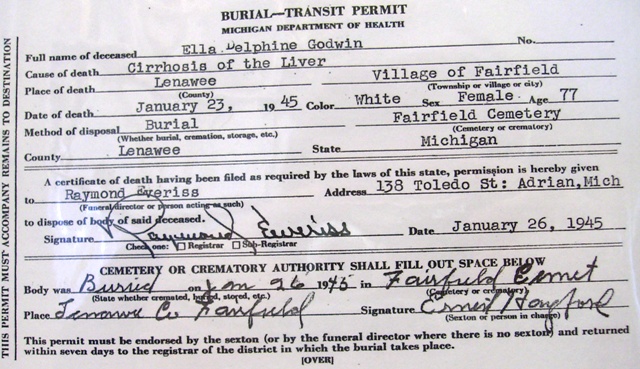 BURIAL—TRANSIT PERMIT
MICHIGAN DEPARTMENT OF HEALTH
Full name of deceased Ella Delphine Godwin No.
Cause of death Cirrhosis of the Liver
Place of death Lenawee Village of Fairfield
(County) (Township or village or city)
Date of death January 23, 1945 Color White Sex Female Age 77
Method of disposal Burial Fairfield Cemetery
(Whether burial, cremation, storage, etc.) (Cemetery or crematory)
County Lenawee State Michigan
A certificate of death having been filed as required by the laws of this state, permission is hereby given
to Raymond Everiss Address 138 Toledo St: Adrian, Mich
(Funeral director or person acting as such)
to dispose of body of said deceased.
Signature Raymond Everiss Date January 26, 1945
Check one: Registrar Sub-Registrar
CEMETERY OR CREMATORY AUTHORITY SHALL FILL OUT SPACE BELOW
Body was Buried on Jan 26 1945 in Fairfield Cemet
(State whether cremated, buried, stored, etc.) (Cemetery or crematory)
Place Lenawe Co Fairfield Signature Ernest Hayford
(Sexton or person in charge)
This permit must be endorsed by the sexton (or by the funeral director where there is no sexton) and returned
within seven days to the registrar of the district in which the burial takes place.
[OVER]
THIS PERMIT MUST ACCOMPANY REMAINS TO DESTINATION